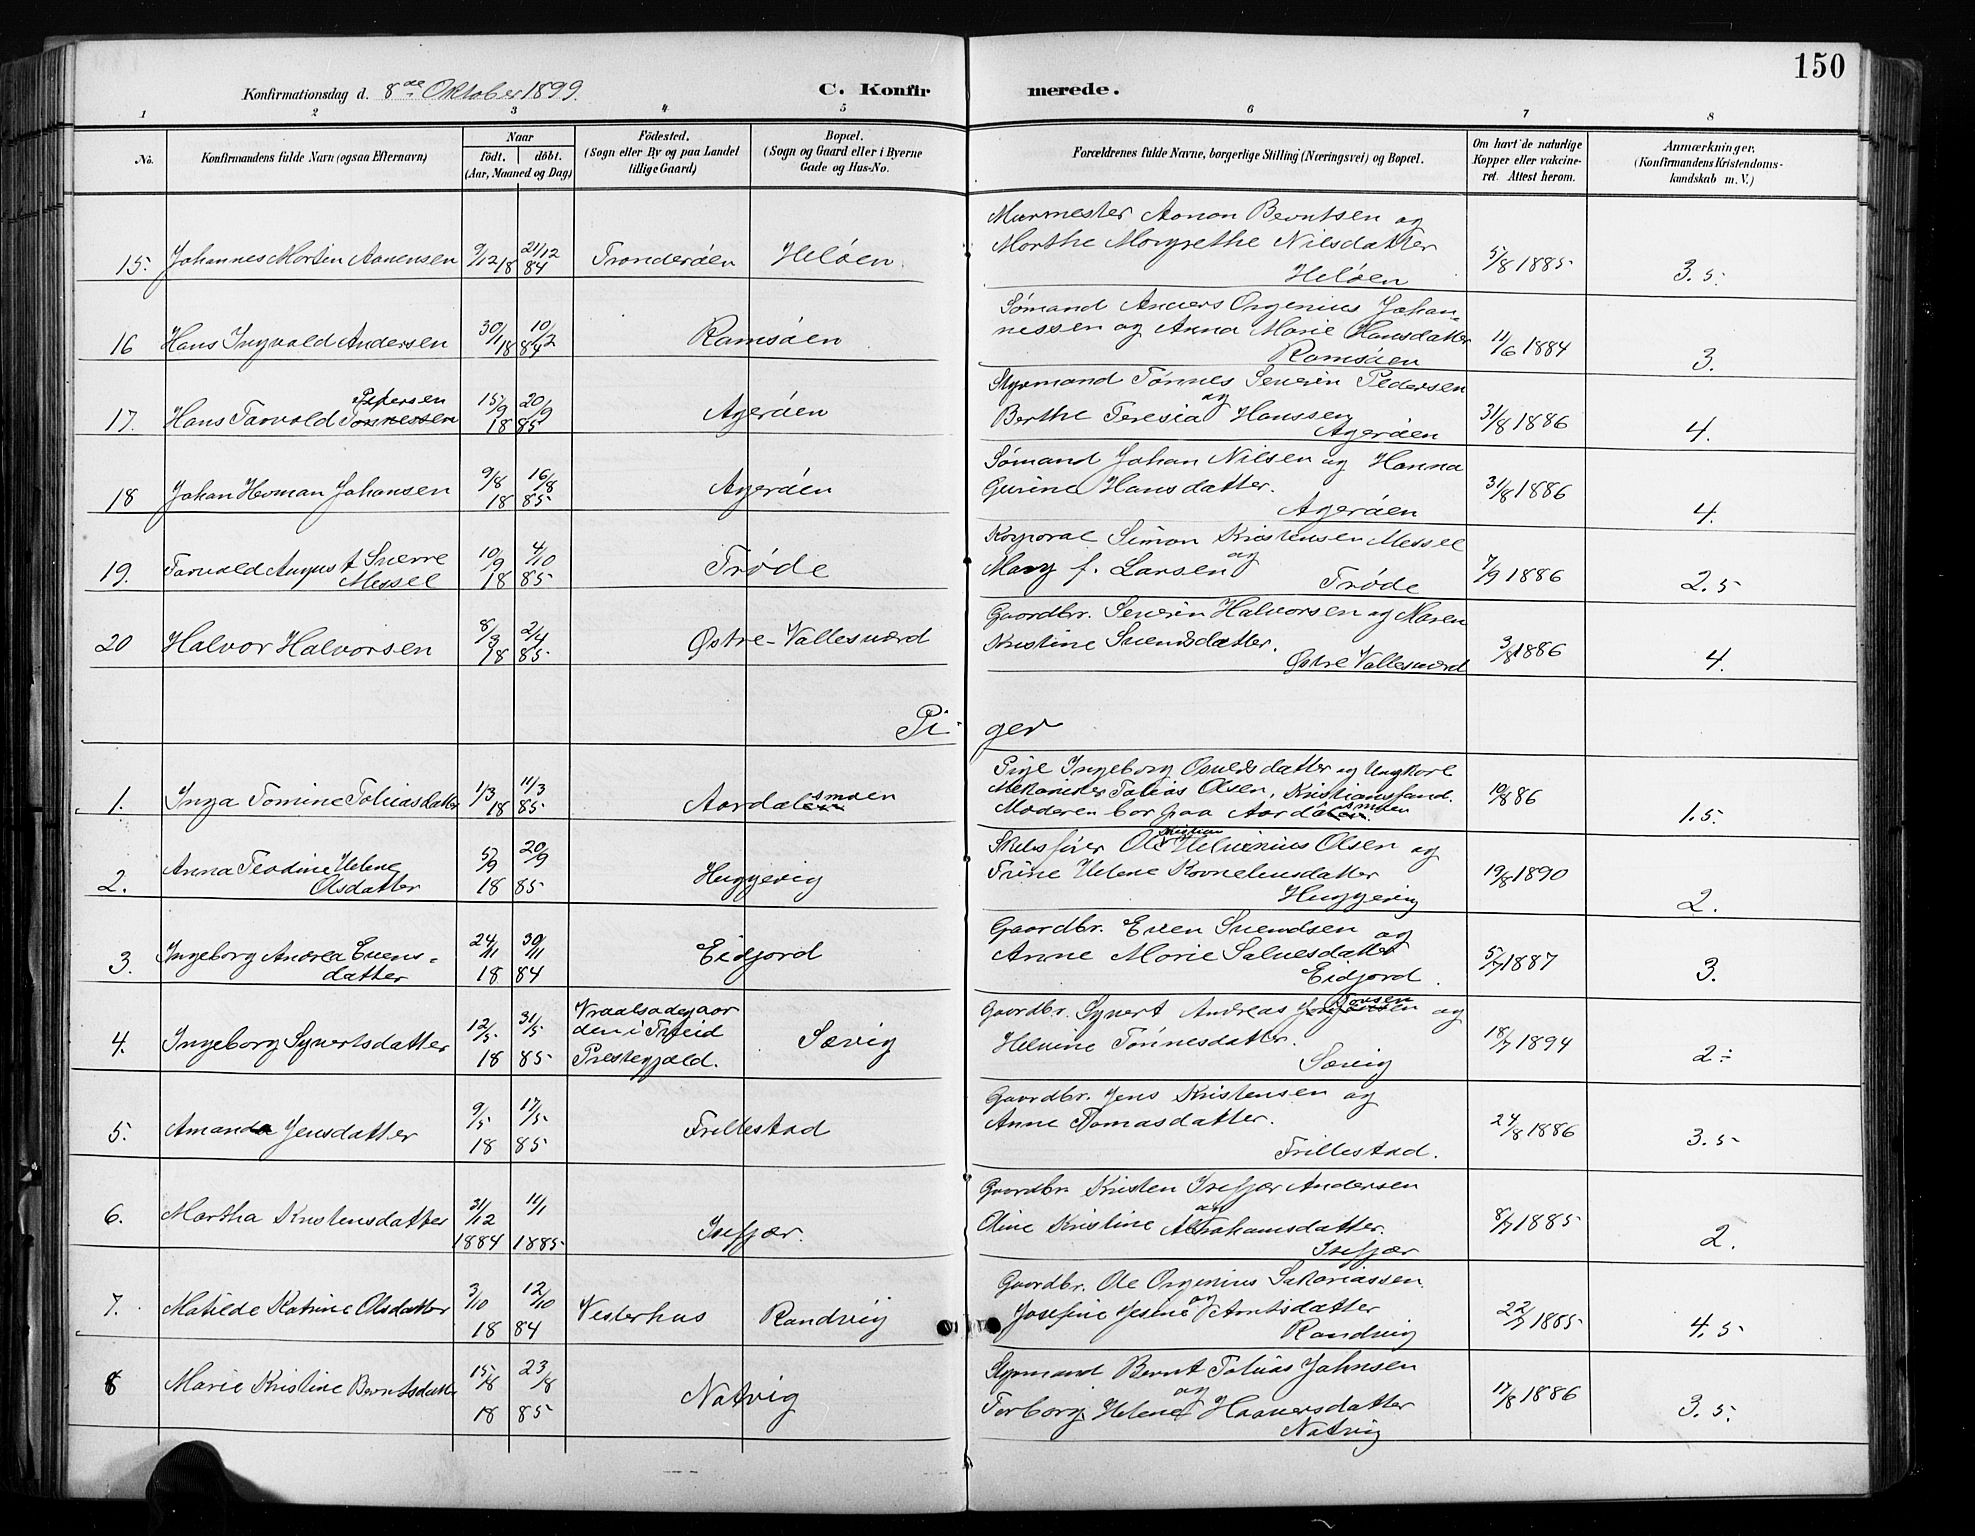 150
Konfirmationsdag d. 8de Oktober 1899.
C. Konfir merede.
1 2 3 4 5 6 7 8
No.
Konfirmandens fulde Navn (ogsaa Efternavn)
Naar
födt. döbt.
(Aar, Maaned og Dag)
Födested.
(Sogn eller By og paa Landet
tillige Gaard)
Bopæl.
(Sogn og Gaard eller i Byerne
Gade og Hus-No.
Forældrenes fulde Navne, borgerlige Stilling (Næringsvei) og Bopæl.
Om havt de naturlige
Kopper eller vakcine-
ret. Attest herom.
Anmærkninger,
(Konfirmandens Kristendoms-
kundskab m. V.)
15. Johannes Martin Aanensen 9/12 18 21/12 84 Tronderöen Heløen.
Murmester Aanon Berntsen og
Marthe Margrethe Nilsdatter
Heløen
5/8 1885 3.5
16 Hans Ingvald Andersen 30/1 18 10/2 84 Ramsöen
Sømand Anders Orgenius Johan-
nessen og Anna Marie Hansdatter
Ramsöen
11/6 1884 3.
17. Hans Tarvald Tønnessen Petersen 15/9 18 20/9 85 Ageröen
Styrmand Tønnes Severin Pedersen
og
Berthe Teresia Hanssen
Ageröen
31/8 1886 4.
18 Johan Herman Johansen 9/8 18 16/8 85 Ageröen
Sømand Johan Nilsen og Hanna
Gurine Hansdatter.
Ageröen
31/8 1886 4.
19. Tarvald August Sverre
Messel 10/9 18 4/10 85 Trøde
Korporal Simon Kristensen Messel
og
Mary f. Larsen
Trøde
7/9 1886 2.5
20 Halvor Halvorsen 8/3 18 2/4 85 Østre-Vallesværd
Gaardbr. Severin Halvorsen og Maren
Kristine Svendsdatter.
Østre Vallesværd
3/8 1886 4.
Pi- ger
1. Inga Tomine Tobiasdatter 1/3 18 11/3 85 Aardalsmoen
Pige Ingeborg Osuldsdatter og Ungkarl
Mekanider Tobias Olsen, Kristianssand.
Moderen bor paa Aardalsmoen
10/8 86 1.5
2. Anna Teodine Helene
Olsdatter 5/9 18 20/9 85 Huggevig
Skibsfører Ole Helvinius Olsen og
Trine Helene Korneliusdatter
Huggevig
19/8 1890 2.
3. Ingeborg Andrea Evens-
datter 24/11 18 30/11 84 Eidjord
Gaardbr. Even Svendsen og
Anne Marie Salvesdatter
Eidjord.
5/7 1887 3.
4. Ingeborg Synertsdatter 12/5 18 31/5 85 Vraalsadegaar
den i Tveid
Prestegjæld. Sævig
Gaardbr. Synert Andreas Jørgensen og
Helvine Tønnesdatter.
Sævig
18/7 1894 2÷
5. Amanda Jensdatter 9/5 18 17/5 85 Frillestad
Gaardbr. Jens Kristensen og
Anne Tomasdatter.
Frillestad.
24/8 1886 3.5
6. Martha Kristensdatter 31/12 1884 11/1 1885 Isefjær.
Gaardbr. Kristen Isefjær Andersen
og
Oline Kristine Abrahamsdatter.
Isefjær
8/7 1885 2.
7. Matilde Katrine Olsdatter 3/10 18 12/10 84 Vesterhus Randvig
Gaardbr. Ole Orgenius Sakariassen
og
Josefine Jesine Arntsdatter
Randvig
22/7 1885 4.5
8 Marie Kristine Berntsdatter 15/8 18 23/8 85 Natvig
Styrmand Bernt Tobias Jahnsen
og
Torborg Helene Haaversdatter
Natvig
17/8 1886 3.5